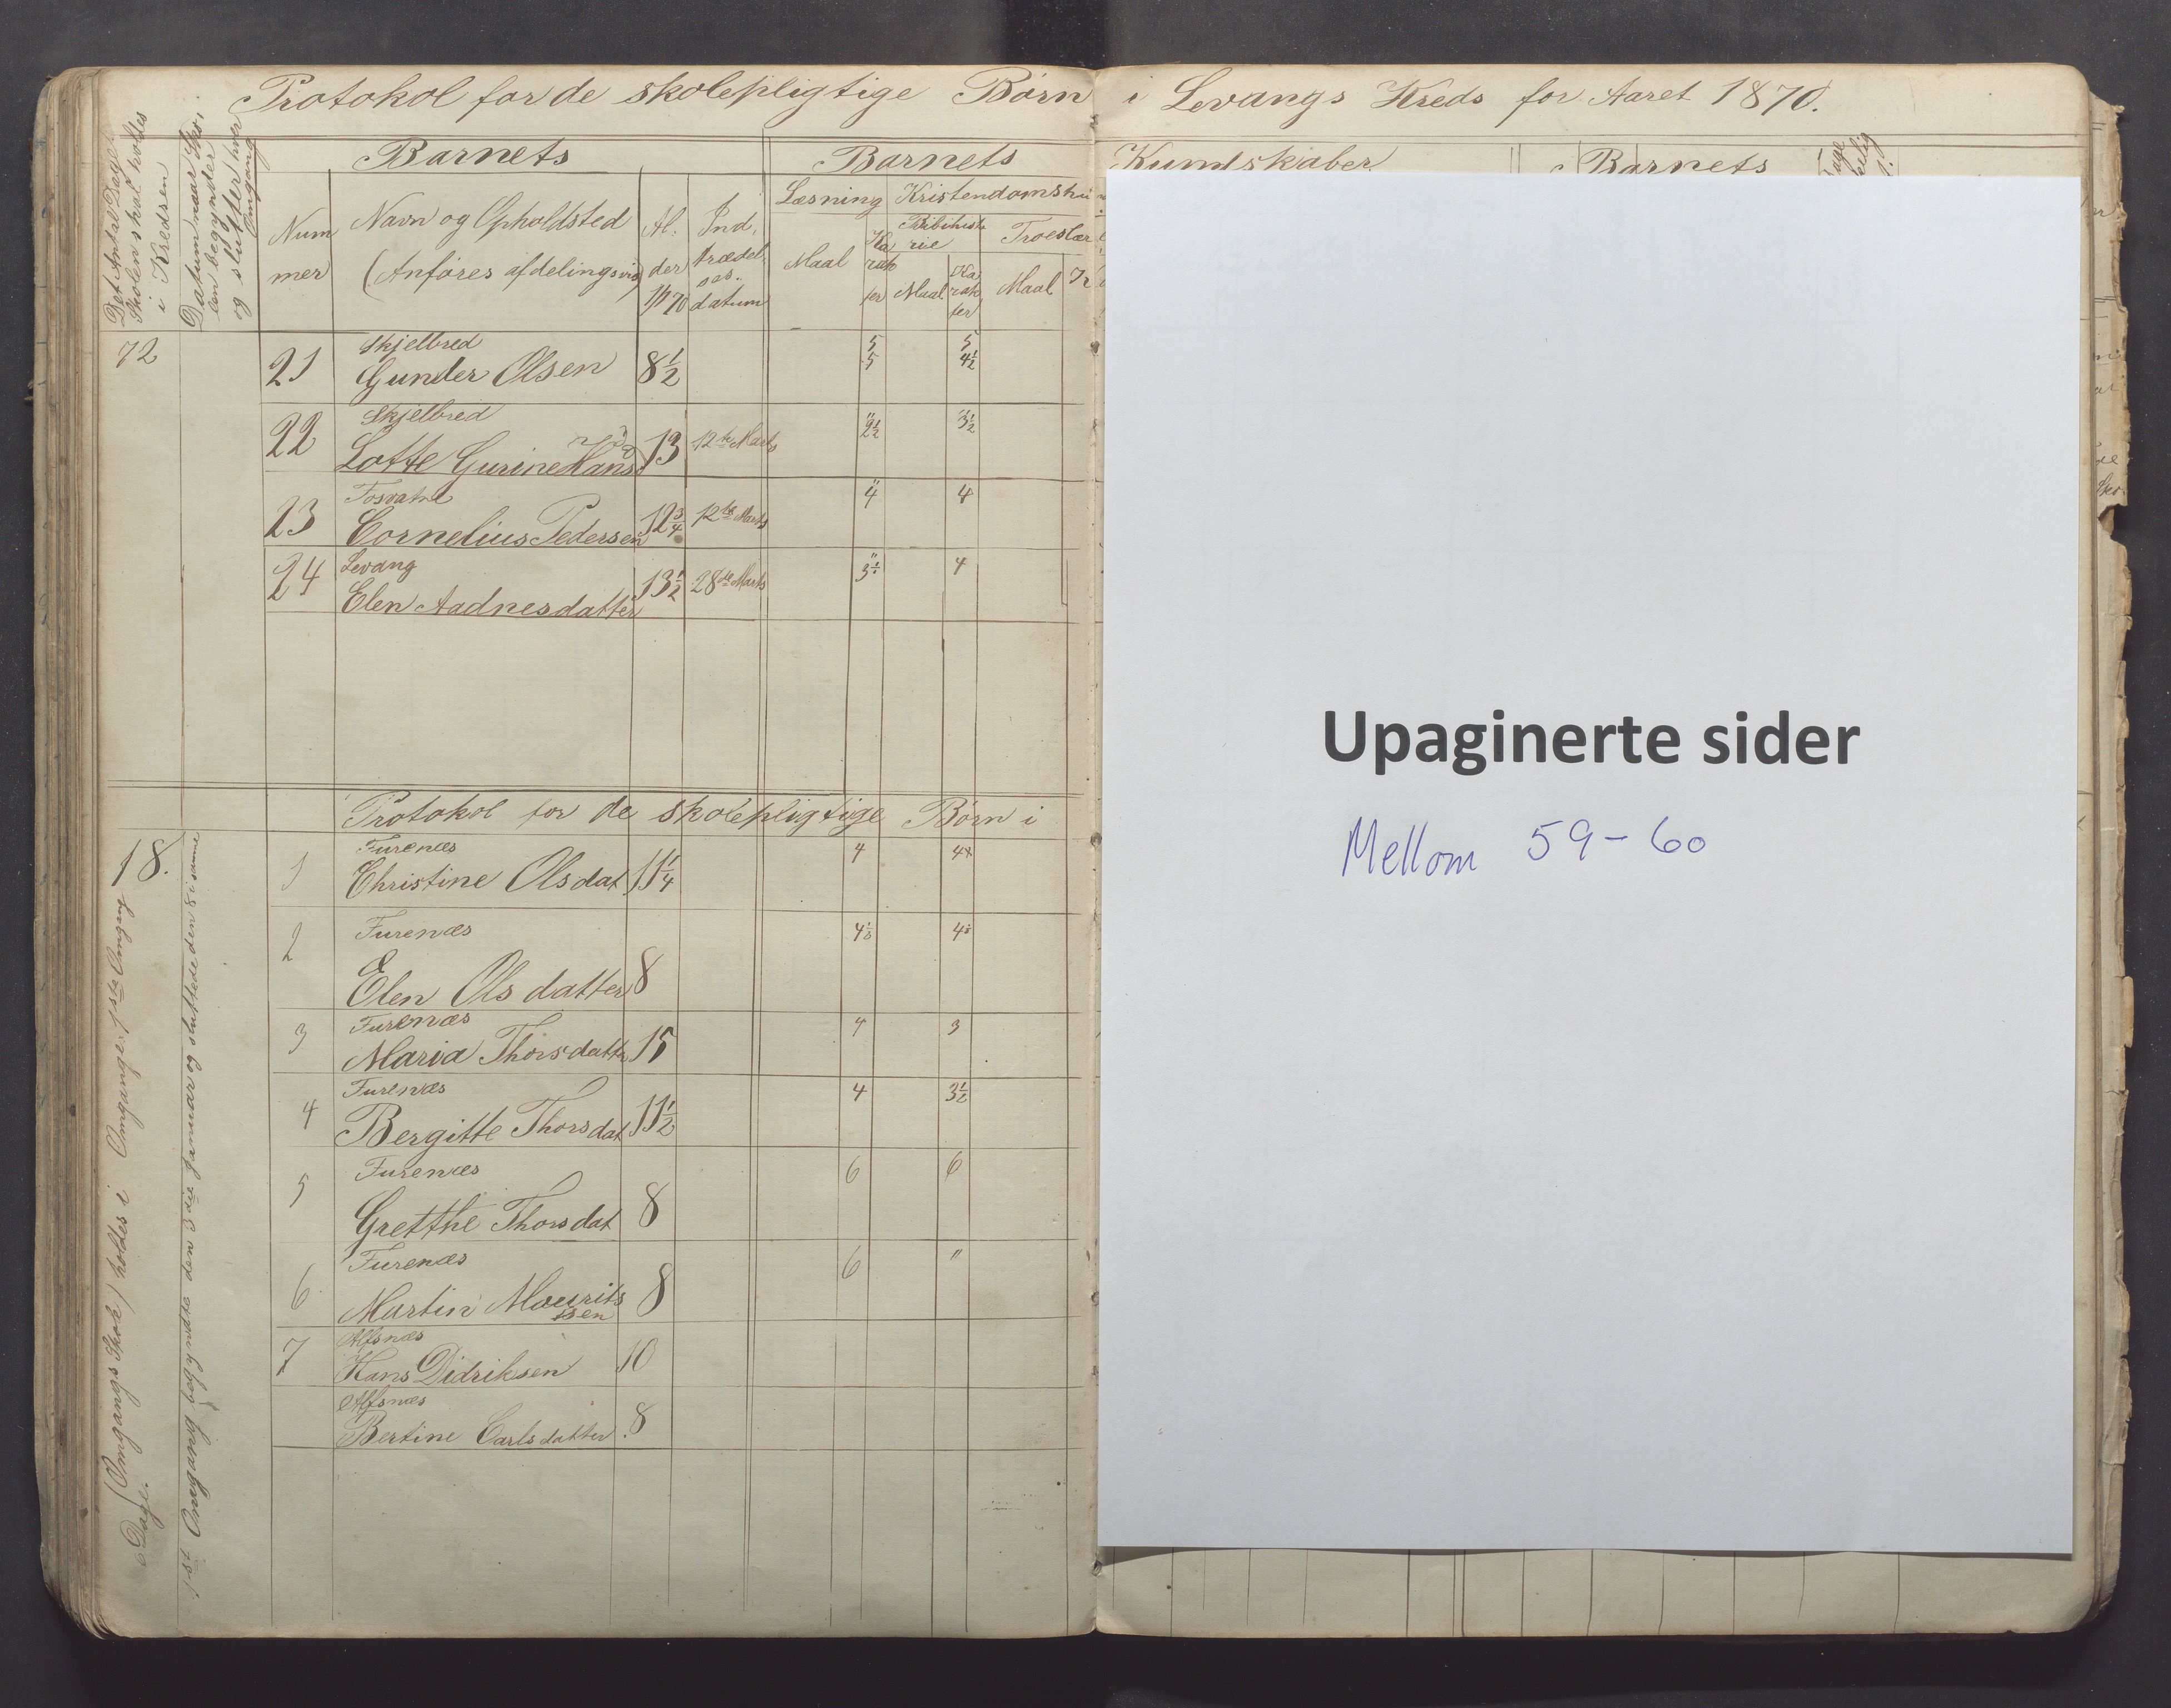 Protokol for de skolepligtige Børn i Levangs Kreds for Aaret 1870.
Det Antal Dage
Skolen skal holdes
i Kredsen
Datum naar Sko,
len begynder
og slutter hver
Omgang
Barnets
Barnets
Kundskaber
Barnets
Num
mer
Navn og Opholdsted
(Anføres afdelingsvis)
Al.
der
1/1 70
Ind,
trædel
ses.
datum
Læsning
Kristendomsku
Maal
Ka
rak
ter
Bibelhisto
rie
Maal
Ka
rak
ter
Troeslær
Maal
72
21 Skjelbred
Gunder Olsen 8½ 5 5
5 4½
22 Skjelbred
Lotte Gurine Hansd 13 12te Marts " 2½ 3½
23 Tosvatne
Cornelius Pedersen 12¾ 12te Marts " 4 4
24 Levang
Elen Aadnesdatter 13½ 28de Marts " 4
Protokol for de skolepligtige Børn i
18.
(Omgangs Skole) holdes i Omganger, 1ste Omgang
6 Dage.
1st Omgang begyndte den 3die Januar og sluttede den 8 i samme
1 Furenæs
Christine Olsdat 11¼ 4 4x
2 Furenæs
Elen Olsdatter 8 4½ 4
3 Furenæs
Maria Thorsdatter 15 4 3
4 Furenæs
Bergitte Thorsdat 11½ 4 3½
5 Furenæs
Gretthe Thorsdat 8 6 6
6 Furenæs
Martin Mourits
sen 8 6 "
7 Alfsnæs
Hans Didriksen 10
Alfsnæs
Bertine Carlsdatter 8
Upaginerte sider
Mellom 59-60